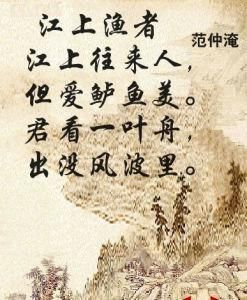 江上渔者
范仲淹
江上往来人，
但爱鲈鱼美。
君看一叶舟，
出没风波里。